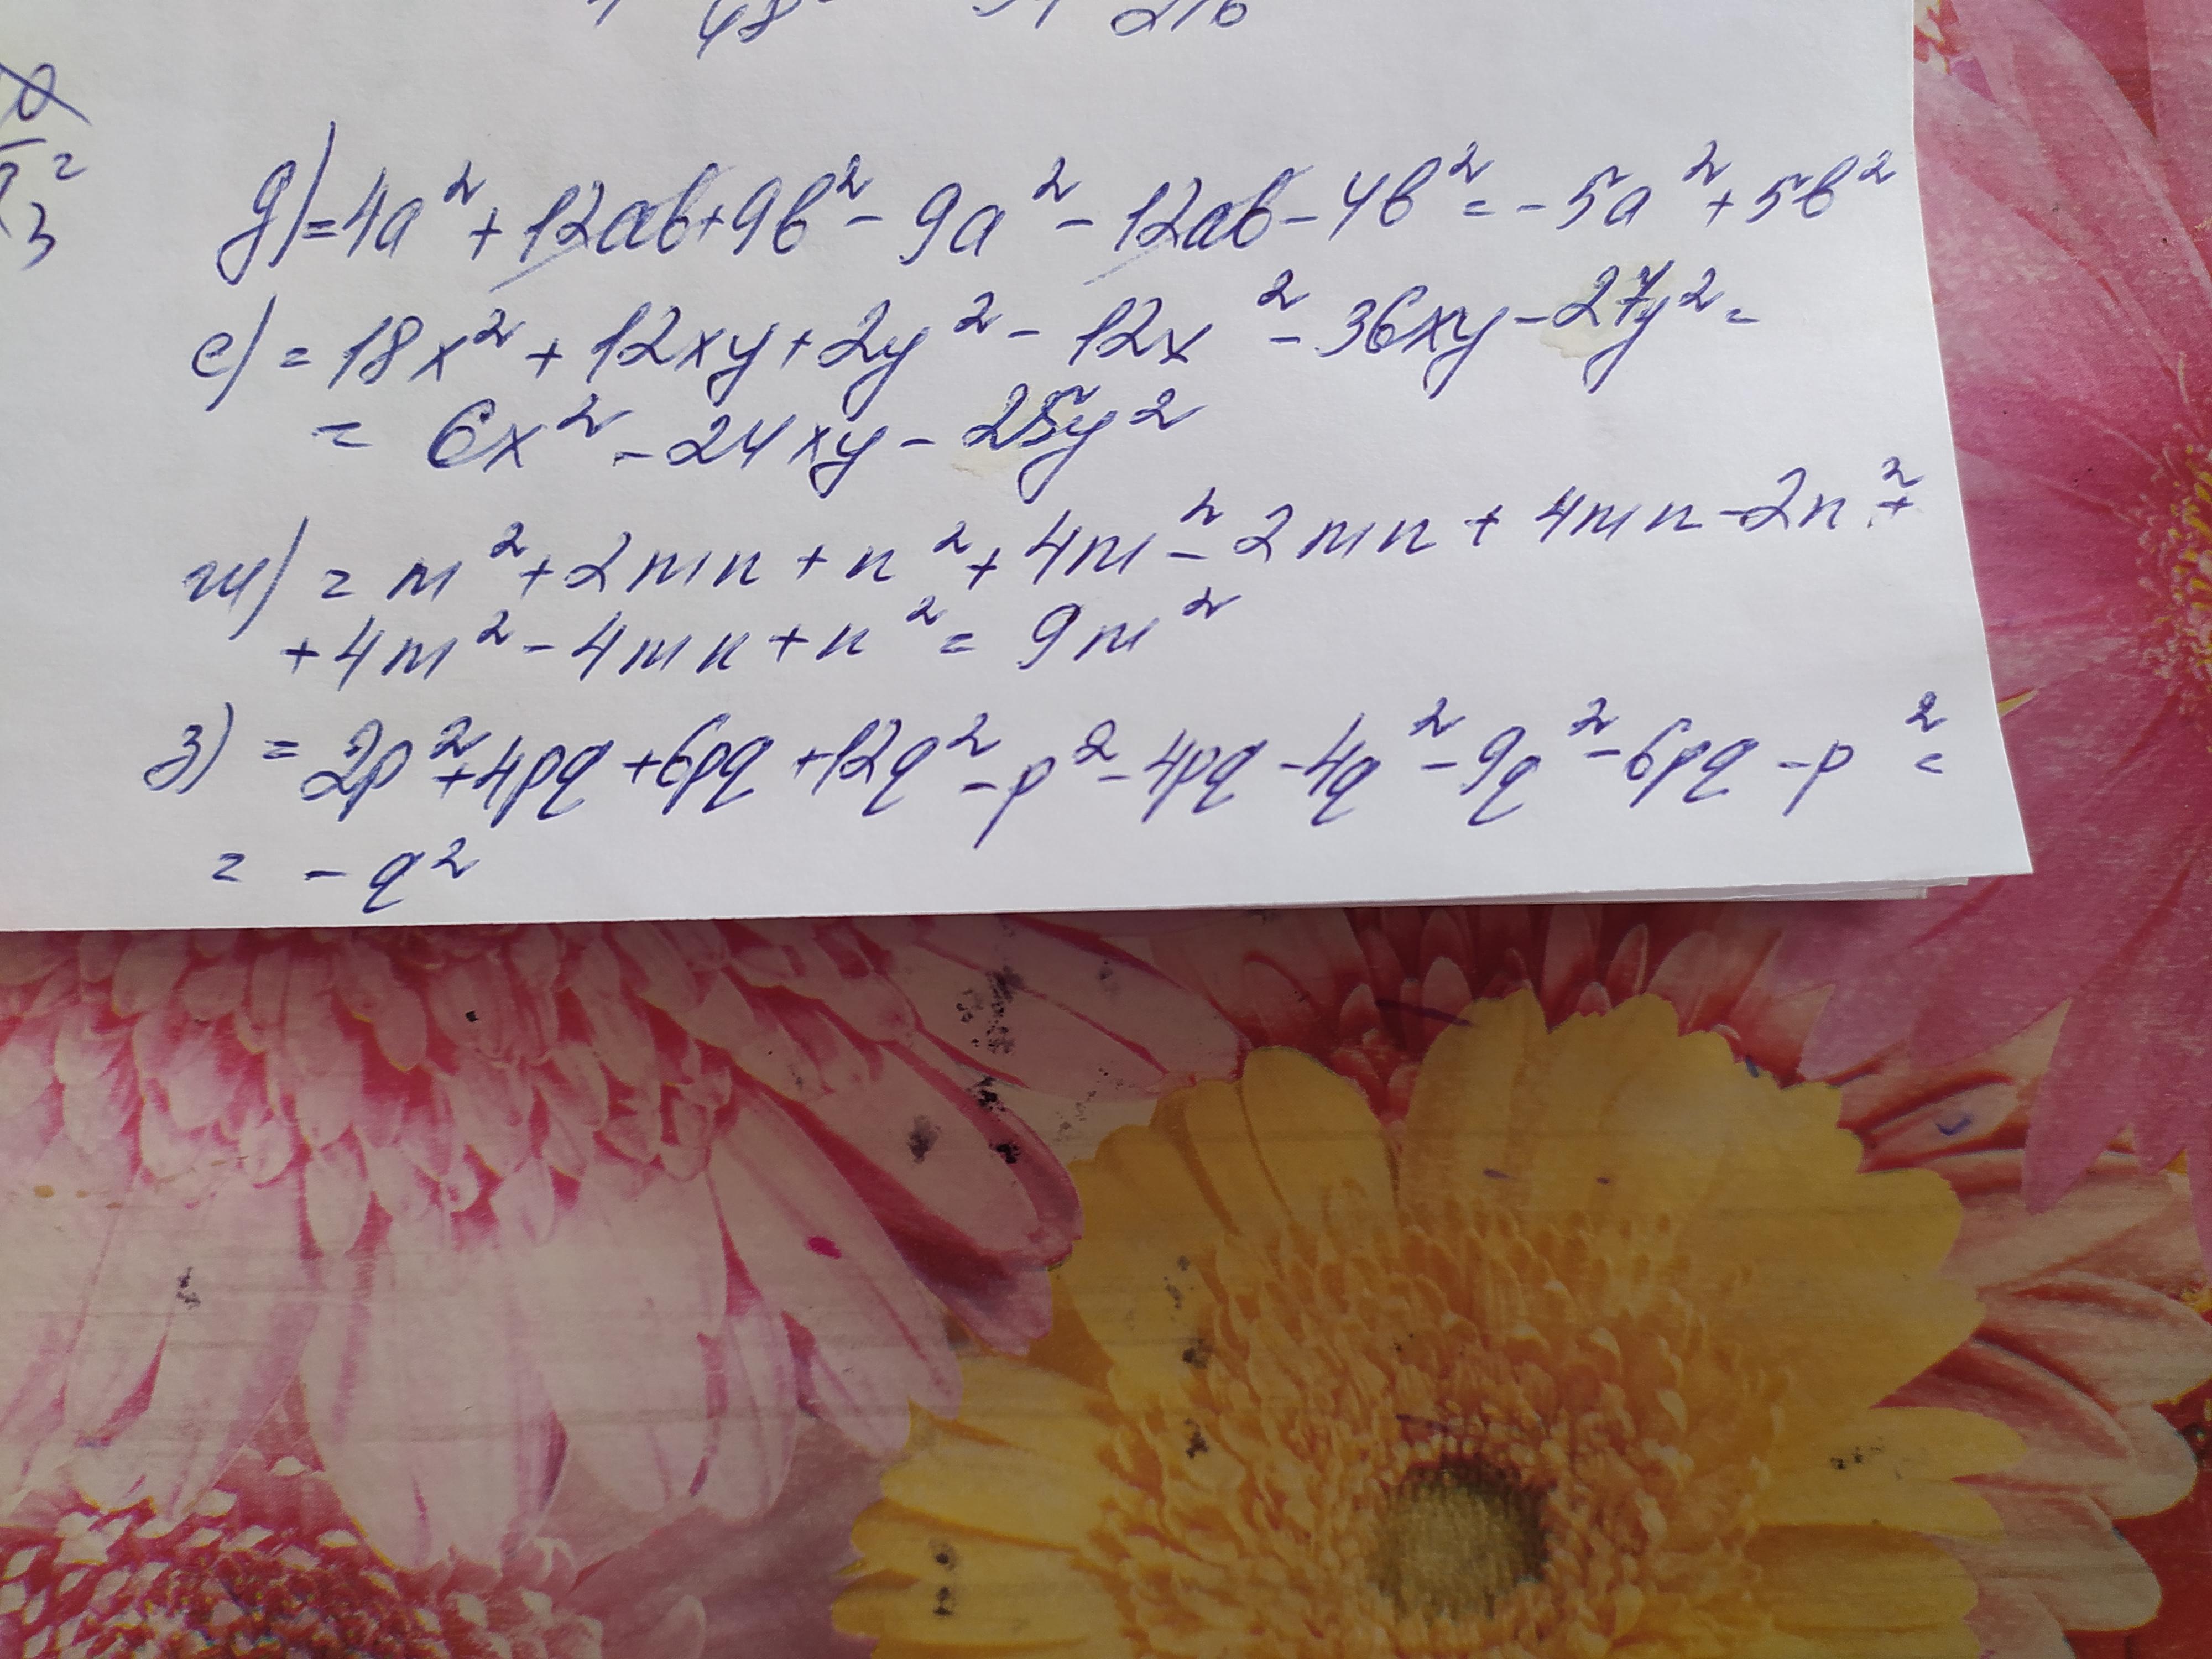 48 216
д) = 4a² + 12ab + 9b² - 9a² - 12ab - 4b² = -5a² + 5b²
е) = 18x² + 12xy + 2y² - 12x² - 36xy - 27y² =
= 6x² - 24xy - 25y²
ж) = m² + 2mn + n² + 4m² - 2mn + 4mn - 2n² +
+ 4m² - 4mn + n² = 9m²
з) = 2p² + 4pq + 6pq + 12q² - p² - 4pq - 4q² - 9q² - 6pq - p² =
= - q²